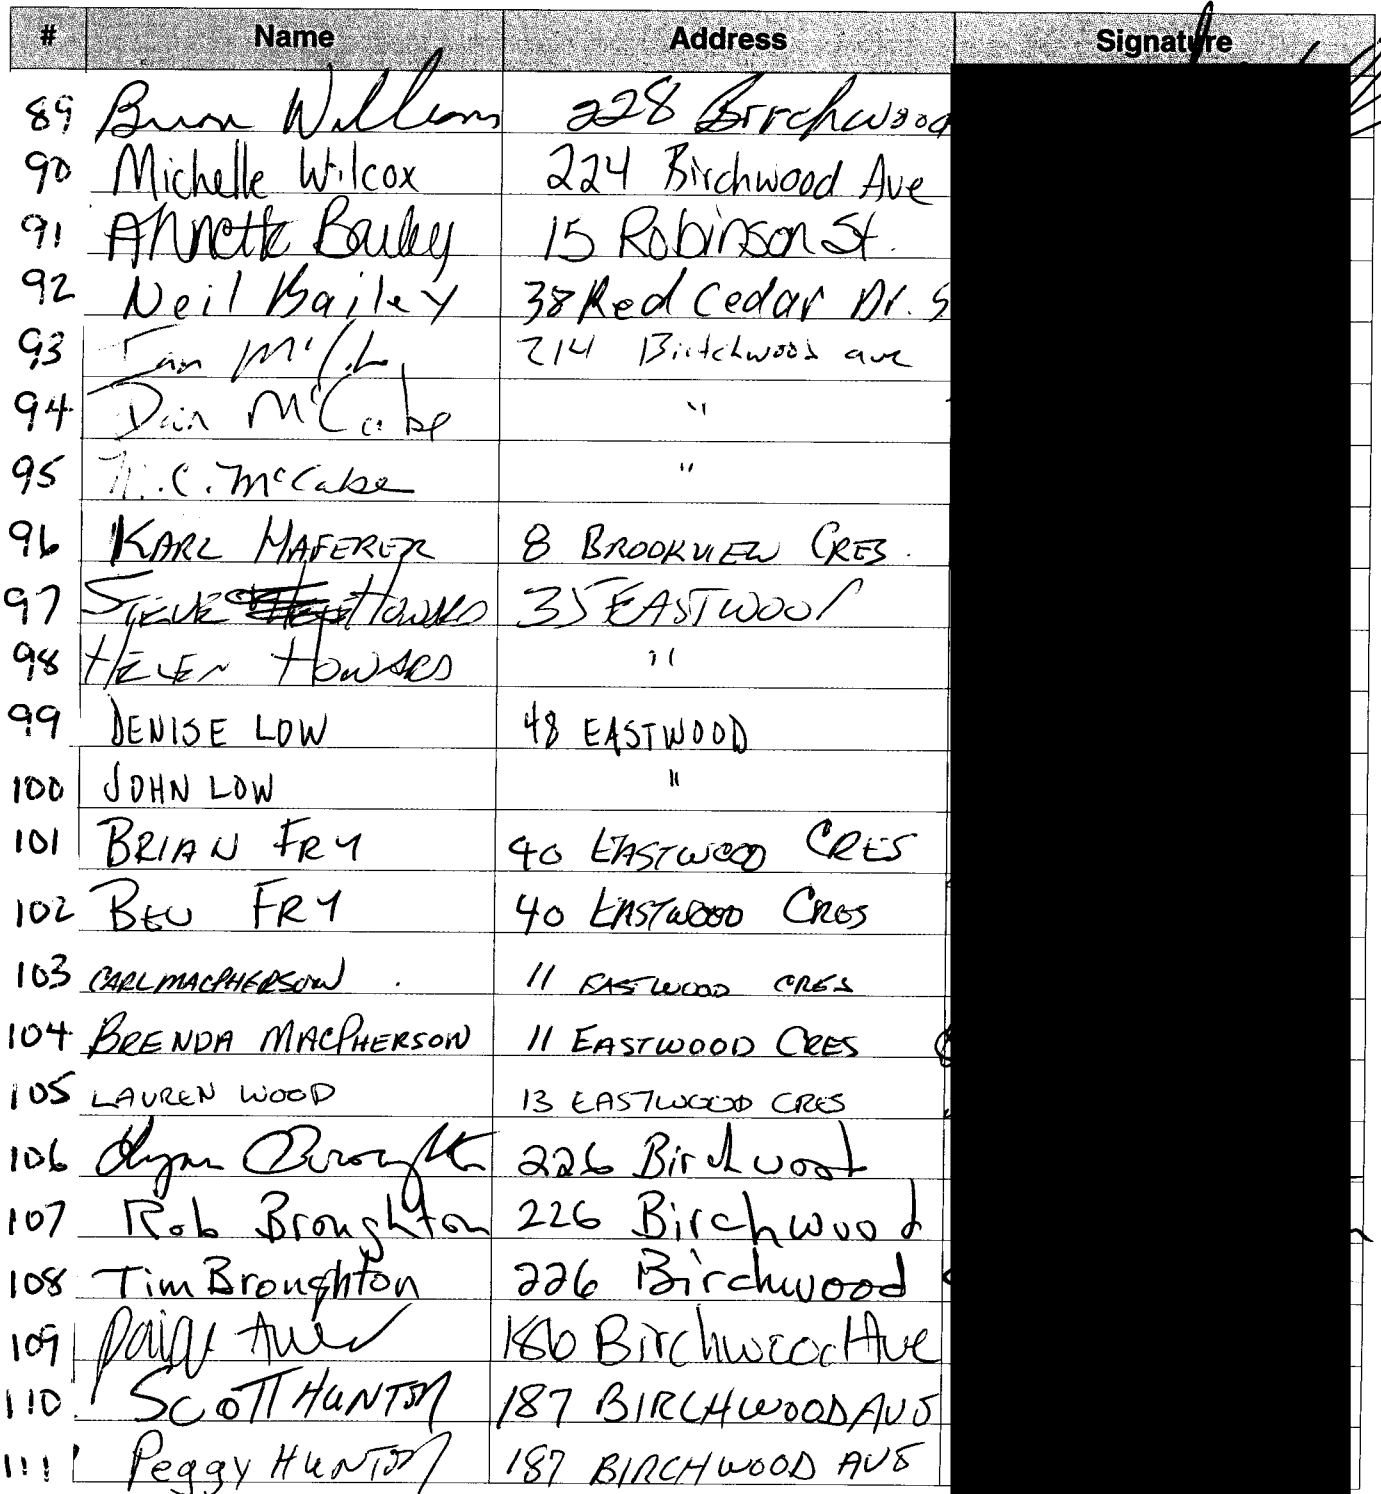 # Name Address Signature
89 Williams 228 Birchwood
90 Michelle Wilcox 224 Birchwood Ave
91 Annette Bailey 15 Robinson St.
92 Neil Bailey 38 Red Cedar Dr. S
93 Ian 214 Birtchwood ave
94 Dan McCabe "
95 C. McCabe "
96 KARL HAFERER 8 BROOKVIEW CRES.
97 STEVE HOWARD 35 EASTWOOD
98 HELEN HOWARD "
99 DENISE LOW 48 EASTWOOD
100 JOHN LOW "
101 BRIAN FRY 40 EASTWOOD CRES
102 BEV FRY 40 EASTWOOD CRES
103 CARL MACPHERSON 11 EASTWOOD CRES
104 BRENDA MACPHERSON 11 EASTWOOD CRES
105 LAUREN WOOD 13 EASTWOOD CRES
106 Lynn Broughton 226 Birchwood
107 Rob Broughton 226 Birchwood
108 Tim Broughton 226 Birchwood
109 Paige 186 Birchwood Ave
110 SCOTT HUNTER 187 BIRCHWOOD AVE
111 Peggy HUNTER 187 BIRCHWOOD AVE